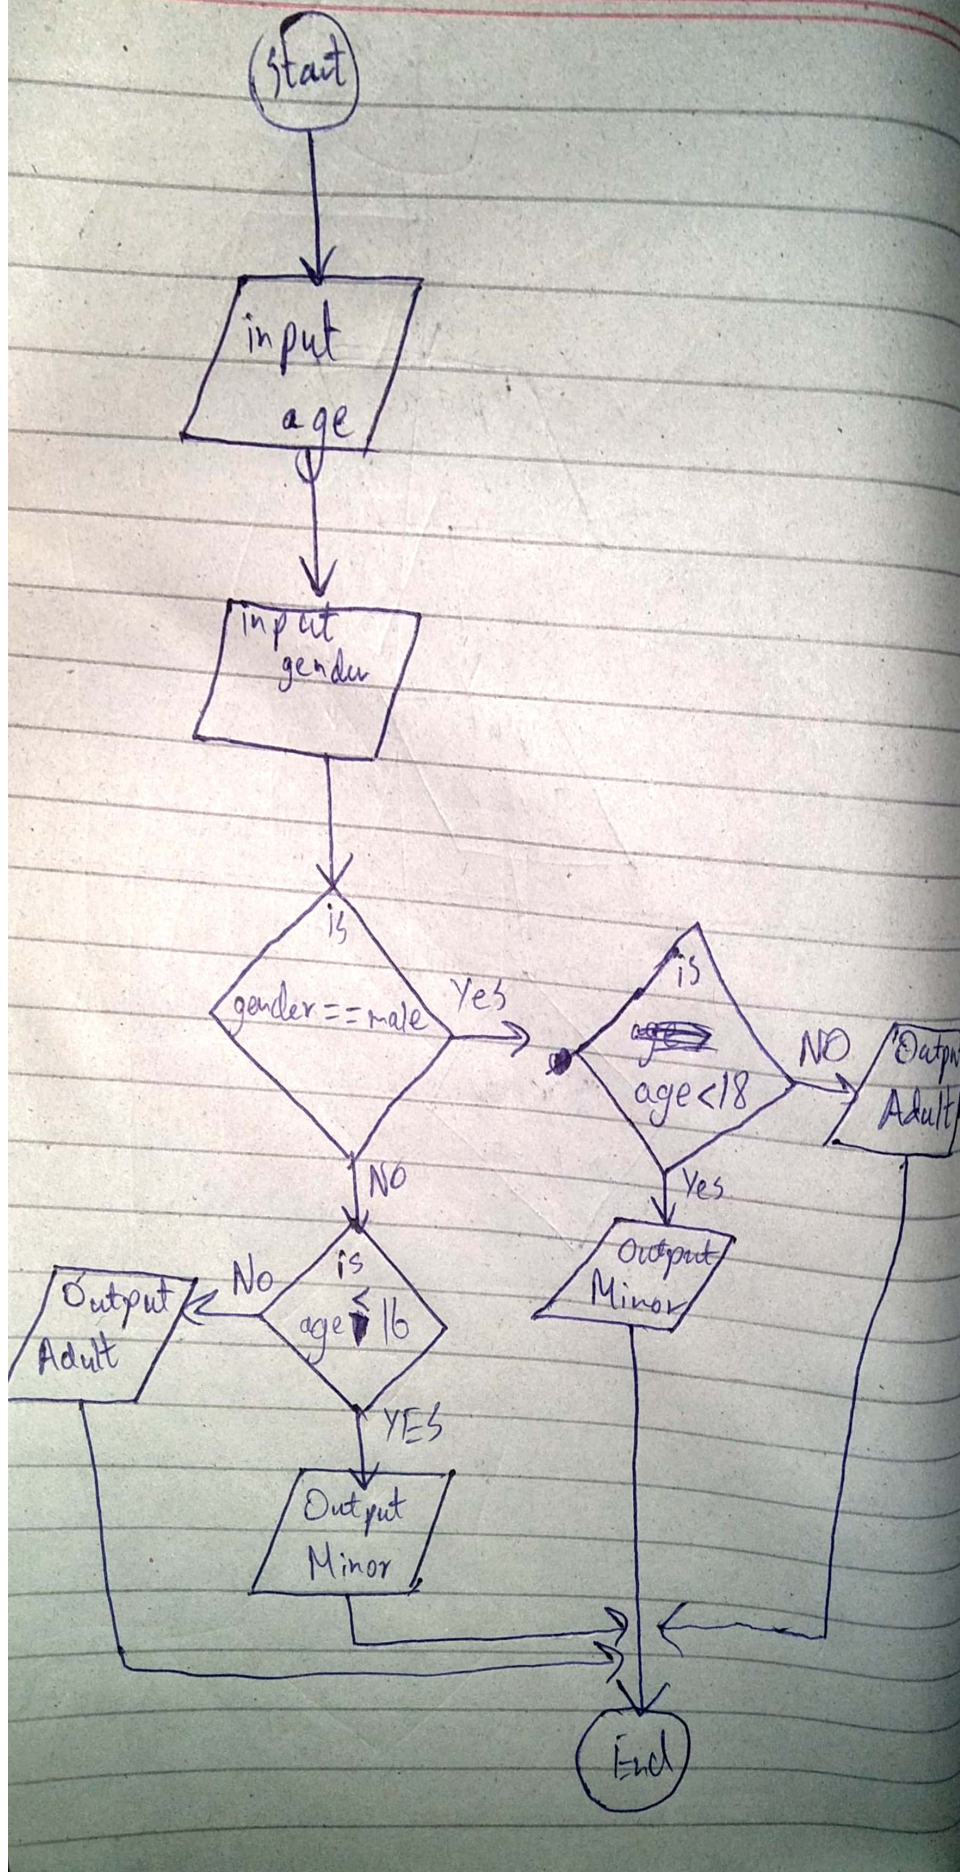 Start
input
age
input
gender
is
gender==male
Yes
NO
is
age<18
NO
Outpu
Adult
Yes
Output
Minor
is
age < 16
No
Output
Adult
YES
Output
Minor
End